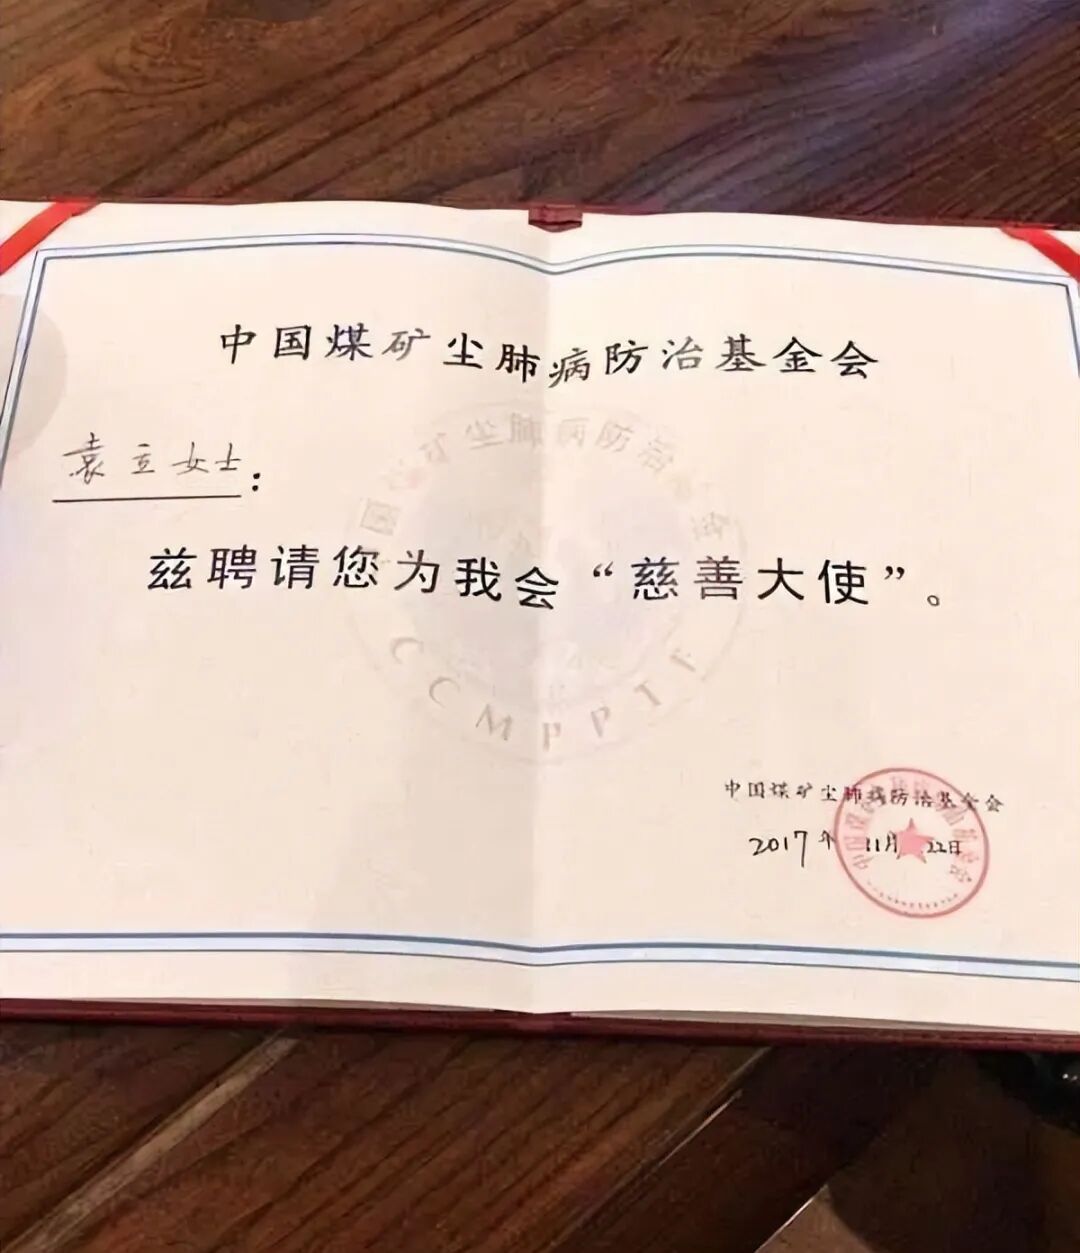 中国煤矿尘肺病防治基金会
袁立女士：
兹聘请您为我会“慈善大使”。
CCMPPTF
中国煤矿尘肺病防治基金会
2017年11月22日